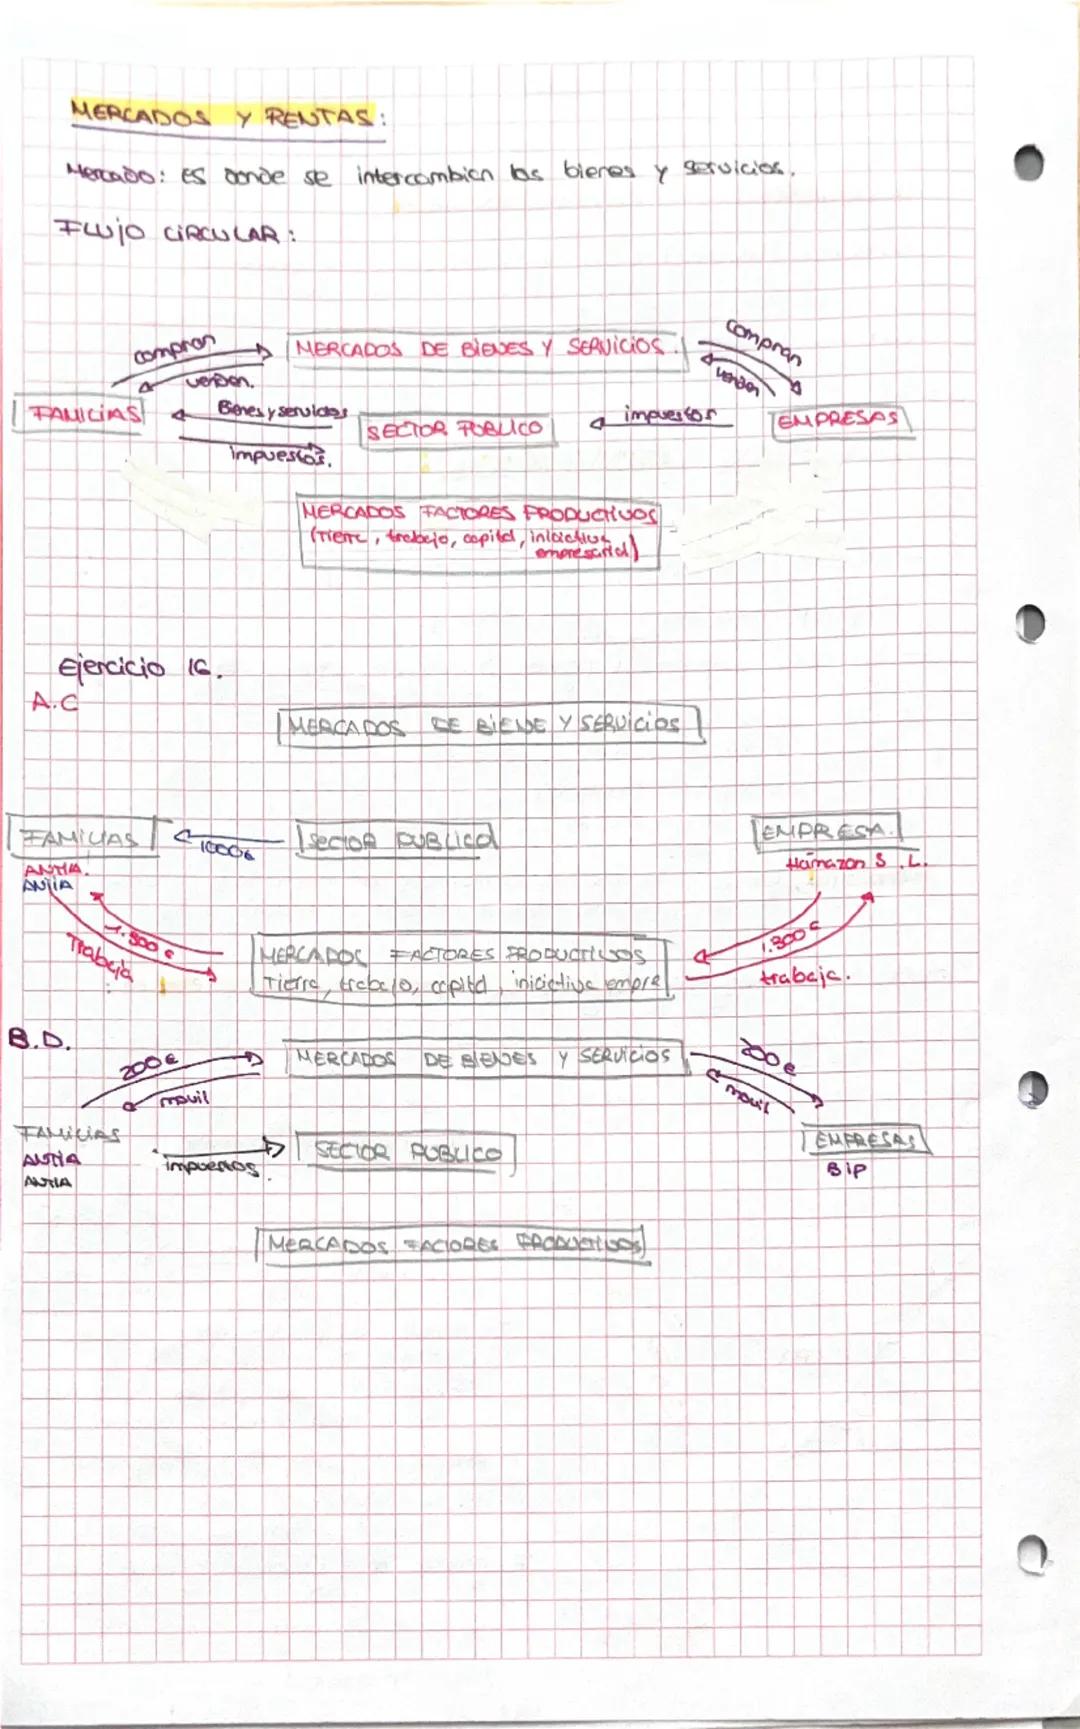 MERCADOS Y RENTAS:
Mercado: ES donde se intercambian los bienes y servicios.
FLUJO CIRCULAR:
compran
MERCADOS DE BIENES Y SERVICIOS.
compran
venden.
venden
FAMILIAS
Bienes y servicios
SECTOR PUBLICO
impuestos
EMPRESAS
impuestos.
MERCADOS FACTORES PRODUCTIVOS
(Tierra, trabajo, capital, iniciativa
empresarial)
Ejercicio 16.
A.C
MERCADOS DE BIENE Y SERVICIOS
FAMILIAS
1000€
SECTOR PUBLICO
EMPRESA.
ANTIA.
ANTIA
Hamazon S.L.
1.300€
Trabaja
MERCADOS FACTORES PRODUCTIVOS
Tierra, trabajo, capital, iniciativa empre
1.300€
trabaja.
B.D.
200€
MERCADOS DE BIENES Y SERVICIOS
200€
movil
movil
FAMILIAS
impuestos.
SECTOR PUBLICO
EMPRESAS
ANTIA
ANTIA
BIP
MERCADOS FACTORES PRODUCTIVOS